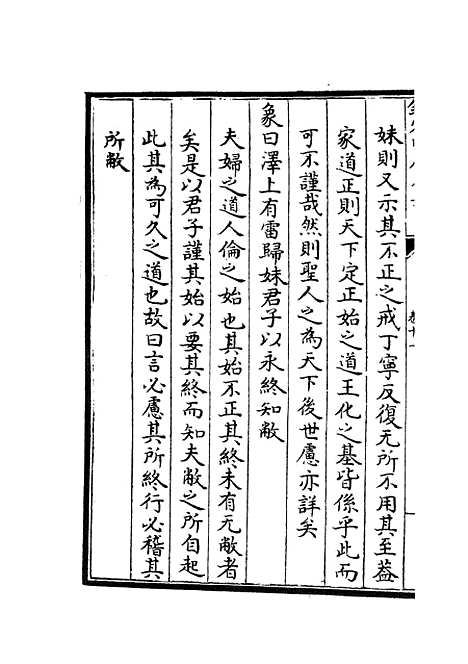 妹則又示其不正之戒丁寧反復无所不用其至葢
家道正則天下定正始之道王化之基皆係乎此而
可不謹哉然則聖人之為天下後世慮亦詳矣
象曰澤上有雷歸妹君子以永終知敝
夫婦之道人倫之始也其始不正其終未有无敝者
矣是以君子謹其始以要其終而知夫敝之所自起
此其為可久之道也故曰言必慮其所終行必稽其
所敝